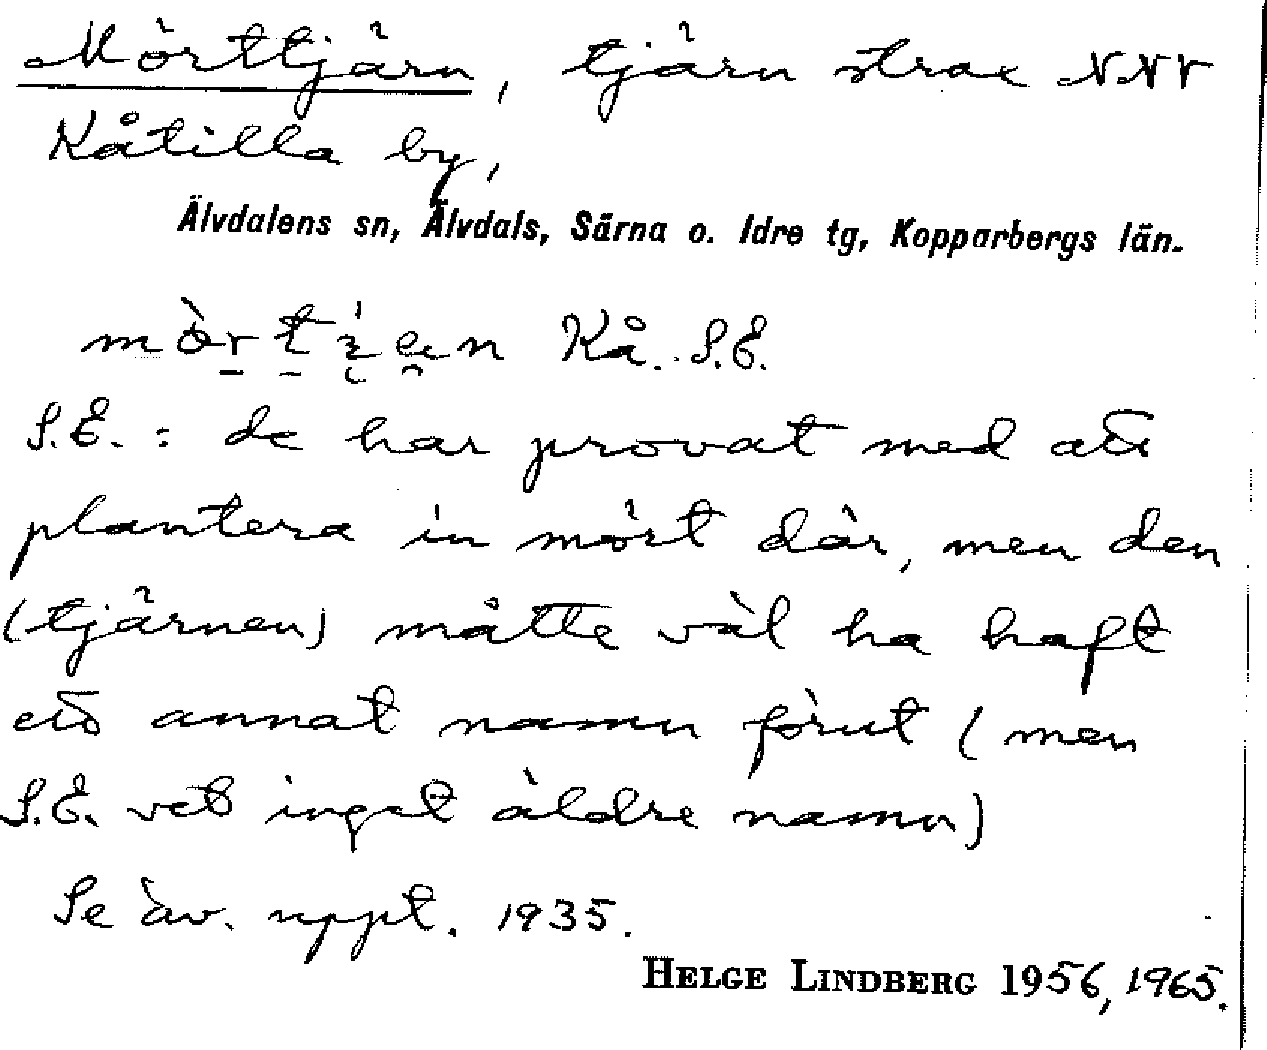 Mörttjärn, tjärn strax NNV
Kåtilla by,
Älvdalens sn, Älvdals, Särna o. Idre tg, Kopparbergs län.
Kå. S.E.
S.E. : de har provat med att
plantera in mört där, men den
(tjärnen) måtte väl ha haft
ett annat namn förut (men
S.E. vet inget äldre namn)
Se äv. uppt. 1935.
HELGE LINDBERG 1956, 1965.